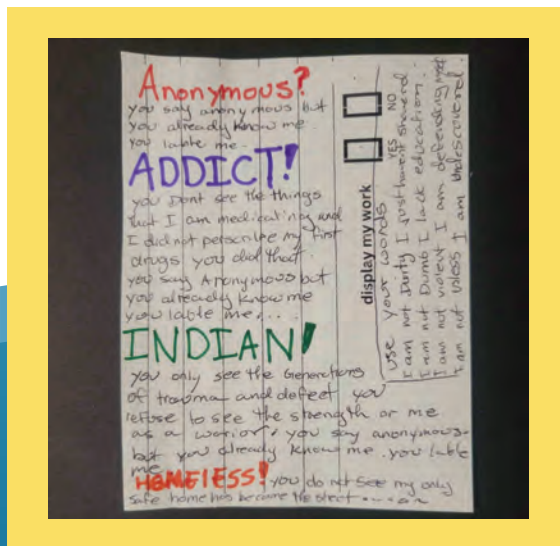 Anonymous?
you say anonymous but
you already know me.
you lable me.
ADDICT!
you Dont see the things
that I am medicating and
I did not perscribe my first
drugs you did that
you say Anonymous but
you already know me
you lable me....
INDIAN!
you only see the Generations
of trauma and defeet you
refuse to see the strength or me
as a worior. you say anonymous.
but you already know me. you lable
me
HOMElESS! you do not see my only
safe home has become the street
display my work
YES NO
use your words
I am not Dirty I just havent showerd.
I am not Dumb I lack education.
I am not violent I am defending
I am not Usless I am